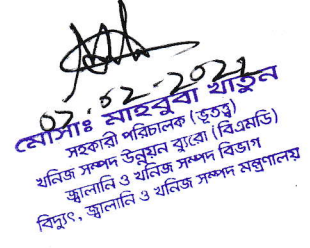 ০২.০২.২০২১
মোসাঃ মাহবুবা খাতুন
সহকারী পরিচালক (ভূতত্ত্ব)
খনিজ সম্পদ উন্নয়ন ব্যুরো (বিএমডি)
জ্বালানি ও খনিজ সম্পদ বিভাগ
বিদ্যুৎ, জ্বালানি ও খনিজ সম্পদ মন্ত্রণালয়